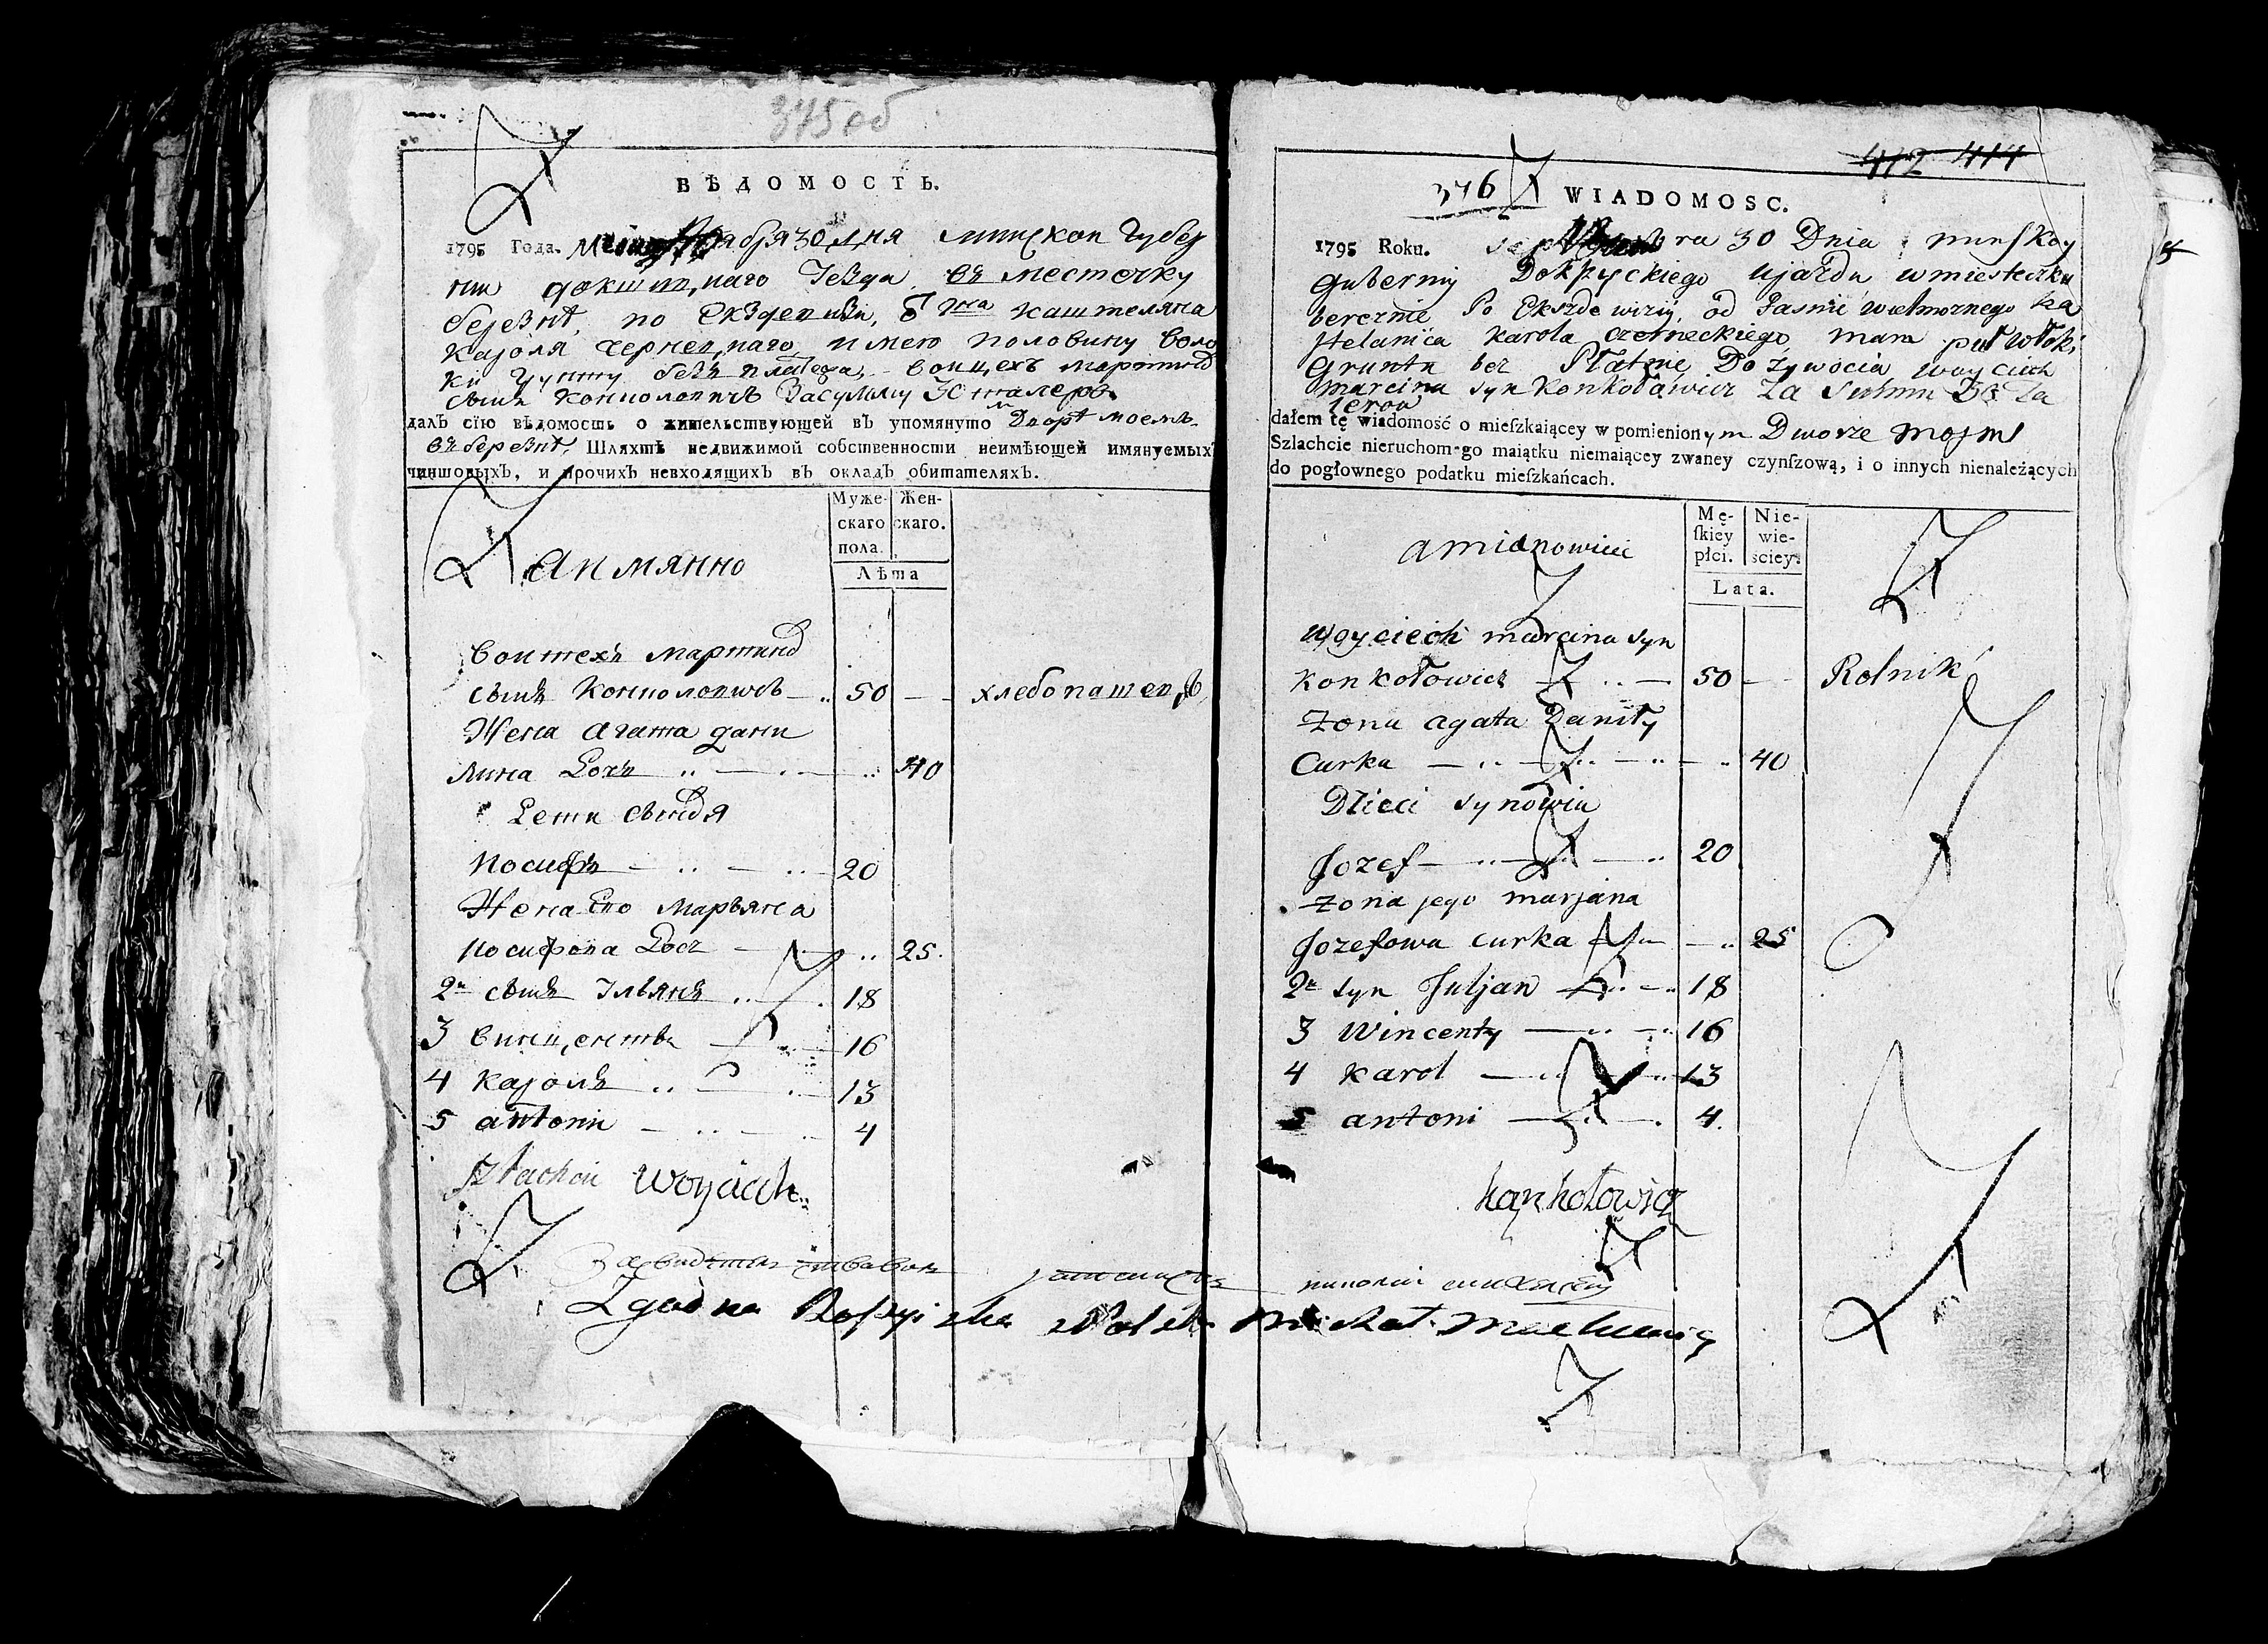 375 об
ВѢДОМОСТЬ.
1795 Года. ября 30 дня минскои Губер
нии докшицкаго Уезда въ местечку
березнѣ, по Екздевизи, каштеляна
кароля чернецкаго имею половину воло
ки грунту безъ платежа, воицехъ мартина
сынъ конколовичъ За сумму 30 талеров
далъ сїю вѣдомость о жительствующей въ упомянуто м Дворѣ моемъ
въ березнѣ, Шляхтѣ недвижимой собственности неимѣющей имянуемыхъ
чиншовыхъ, и прочихъ невходящихъ въ окладъ обитателяхъ.
Муже- скаго пола. Жен- скаго.
Лѣта
Аимянно
Воитехъ мартина
сынъ Конколовичъ 50 — хлебопашец
Жена агата дани
лина Дочь 40
Дети сыновя
Иосифъ 20
Жена Его Марьяна
Иосифова Доч 25.
2й сынъ Ильянъ 18
3 винцентъ 16
4 кароль 13
5 антони 4
Szlachcic Woyciech
376
412 414
WIADOMOSC.
1795 Roku. ra 30 Dnia minskoy
Guberniy Dokszyckiego Ujazdu w miesteczku
bereznie Po Ekszdewiziy, od Jasnie wielmoznego ka
sztelanica Karola czerneckiego mam puł włoki
Gruntu bez Płatnie Do zywocia woyciech
marcina syn Konkołowicz Za Summu 30 Ta
lerow
dałem tę wiadomość o mieſzkaiącey w pomieniony m Dworze moim
Szlachcie nieruchom-go maiątku niemaiącey zwaney czynſzową, i o innych nienależących
do pogłownego podatku mieſzkańcach.
Mę- ſkiey płci. Nie- wie- ściey.
Lata.
amianowicie
Woyciech marcina syn
Konkołowicz 50 — Rolnik
Żona agata Daniły
Curka 40
Dzieci synowia
Jozef 20
Żona jego marjana
Jozefowa curka 25
2й syn Juljan 18
3 Wincenty 16
4 Karol 13
5 antoni 4.
konkołowicz
Zgodno Michał